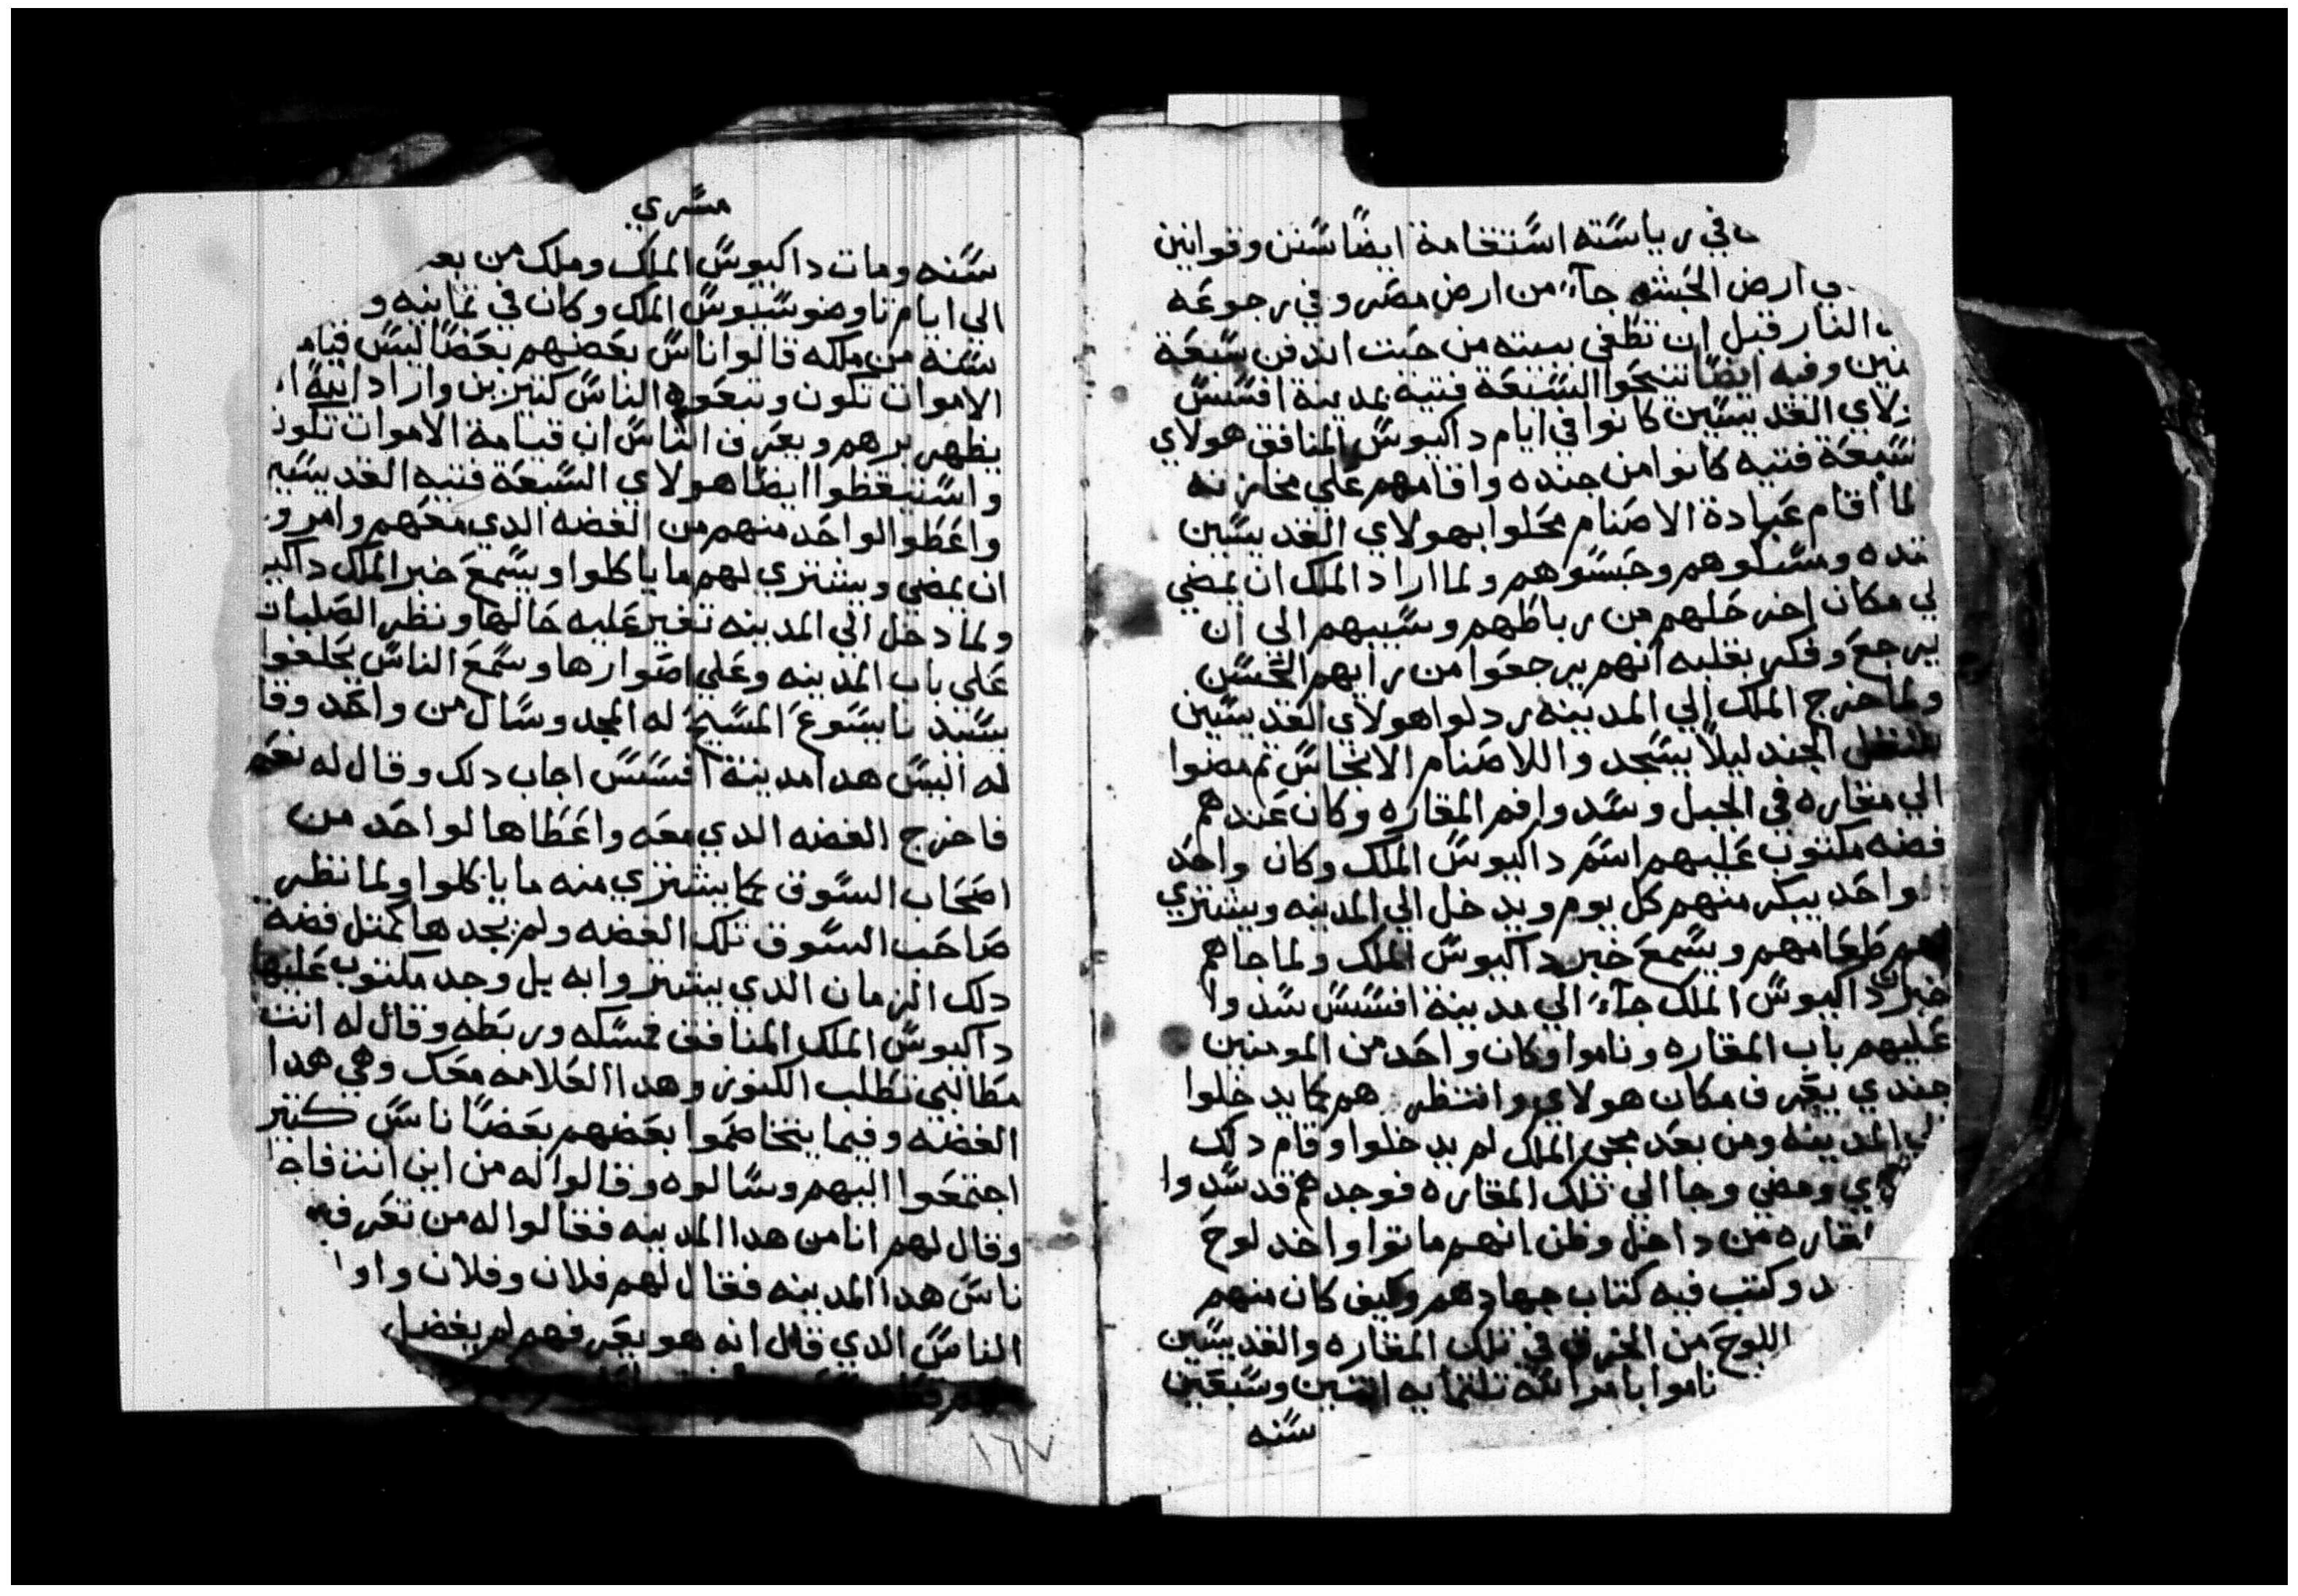 في رياسته استقامة ايضا سنن وقوانين
ارض الحبشه جاء من ارض مصر وفي رجوعه
النار قبل ان تطفي بيبته من حيت اندفن سبعة
نين وفيه ايضا تنيحوا السبعة فتيه بمدينة افسس
لاي القديسين كانوا في ايام داكيوس المنافق هولاي
سبعة فتيه كانوا من جنده واقامهم علي مخازنه
لما اقام عبادة الاصنام محلوا بهولاي القديسين
نده ومسكوهم وحبسوهم ولما اراد الملك ان يمضي
لي مكان اخر حلهم من رباطهم وسيبهم الي ان
يرجع وفكر بقلبه انهم يرجعوا من رايهم الحسن
ولما خرج الملك الي المدينه ردلوا هولاي القديسين
الجند ليلا يسجدوا للاصنام الانجاس تم مضوا
الي مغاره في الجبل وسدوا فم المغاره وكان عندهم
فضه مكتوب عليهم اسم داكيوس الملك وكان واحد
واحد يبكر منهم كل يوم ويدخل الي المدينه ويشتري
لهم طعامهم ويسمع خبر داكيوس الملك ولما جاهم
خبر ان داكيوس الملك جاء الي مدينة افسس سدوا
عليهم باب المغاره وناموا وكان واحد من المومنين
جندي يعرف مكان هولاي وانتظر هم كما يدخلوا
لي المدينه ومن بعد مجي الملك لم يدخلوا وقام دلك
دي ومضي وجا الي تلك المغاره فوجدهم قد سدوا
لمغاره من داخل وظن انهم ماتوا واخد لوح
د وكتب فيه كتاب جهادهم وكيف كان منهم
اللوح من الخرق في تلك المغاره والقديسين
ناموا بامر الله تلتمايه اتنين وسبعين
سنه
مسري
سنه ومات داكيوس الملك وملك من بعد
الي ايام تاوضوسيوس الملك وكان في تمانيه و
سنه من ملكه قالوا اناس بعضهم بعضا ليس قيام
الاموات تكون وتبعوه الناس كتيرين واراد الله ا
يظهر برهم ويعرف الناس ان قيامة الاموات تكون
واستيقظوا ايضا هولاي السبعة فتيه القديسين
واعطوا الواحد منهم من الفضه الدي معهم وامرو
ان يمضي ويشتري لهم ما ياكلوا ويسمع خبر الملك داكيو
ولما دخل الي المدينه تغير عليه حالها ونظر الصلبان
علي باب المدينه وعلي اصوارها وسمع الناس يحلفوا
بسيدنا يسوع المسيح له المجد وسال من واحد وقا
له اليس هدا مدينة افسس اجاب دلك وقال له نعم
فاخرج الفضه الدي معه واعطاها لواحد من
اصحاب السوق كما يشتري منه ما ياكلوا ولما نظر
صاحب السوق تلك الفضه ولم يجدها كمتل فضة
دلك الزمان الدي يشتروا به بل وجد مكتوب عليها
داكيوس الملك المنافق فمسكه وربطه وقال له انت
مطالبي تطلب الكنوز وهدا العلامه معك وهي هدا
الفضه وفيما يتخاصموا بعضهم بعضا ناس كتير
اجتمعوا اليهم وسالوه وقالوا له من اين انت فاجا
وقال لهم انا من هدا المدينه فقالوا له من تعرف
ناس هدا المدينه فقال لهم فلان وفلان واوا
الناس الدي قال انه هو يعرفهم لم يفضل
١٦٧